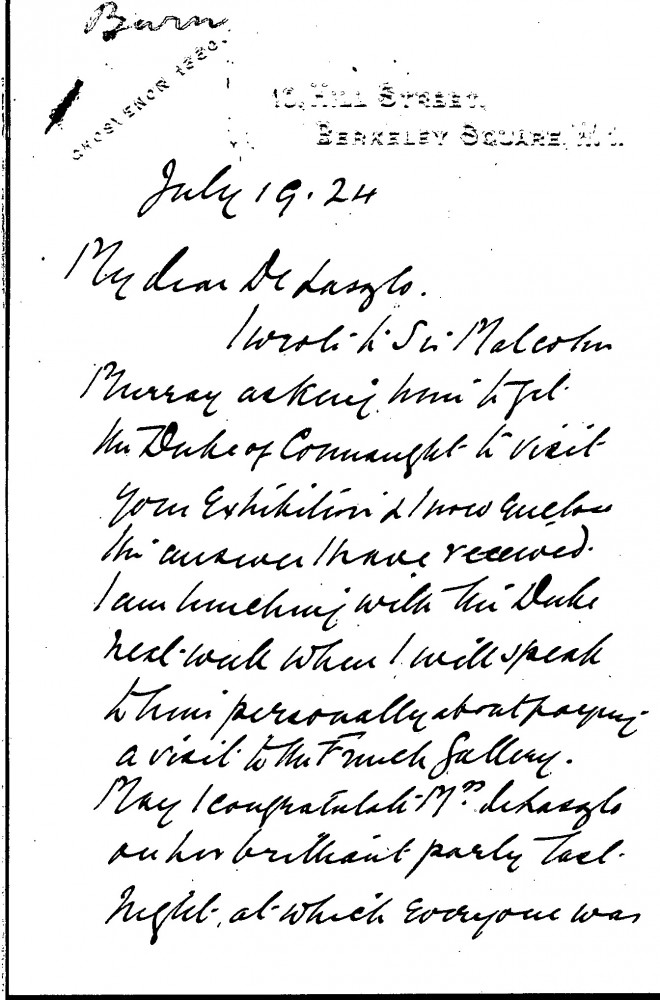 Burn
GROSVENOR 1330.
HILL STREET,
BERKELEY SQUARE, W.1.
July 19.24
My dear De Laszlo.
I wrote to Sir Malcolm
Murray asking him to get
the Duke of Connaught to visit
your Exhibition & I now enclose
the answer I have received.
I am lunching with the Duke
next week when I will speak
to him personally about paying
a visit to the French Gallery.
May I congratulate Mrs deLaszlo
on her brilliant party last
night, at which everyone was